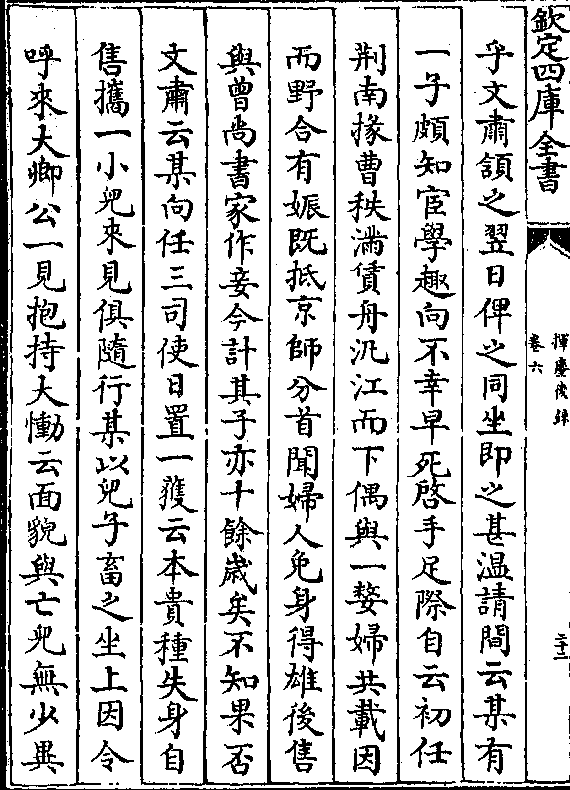 欽定四庫全書
揮麈後錄
卷六
二十二
乎文肅頷之翌日俾之同坐即之甚温請間云某有
一子頗知宦學趣向不幸早死啓手足際自云初任
荆南掾曹秩滿賃舟汎江而下偶與一嫠婦共載因
而野合有娠既抵京師分首聞婦人免身得雄後售
與曾尚書家作妾今計其子亦十餘歲矣不知果否
文肅云某向任三司使日置一獲云本貴種失身自
售攜一小兒來見俱隨行某以兒子畜之坐上因令
呼來大卿公一見抱持大慟云面貌與亡兒無少異